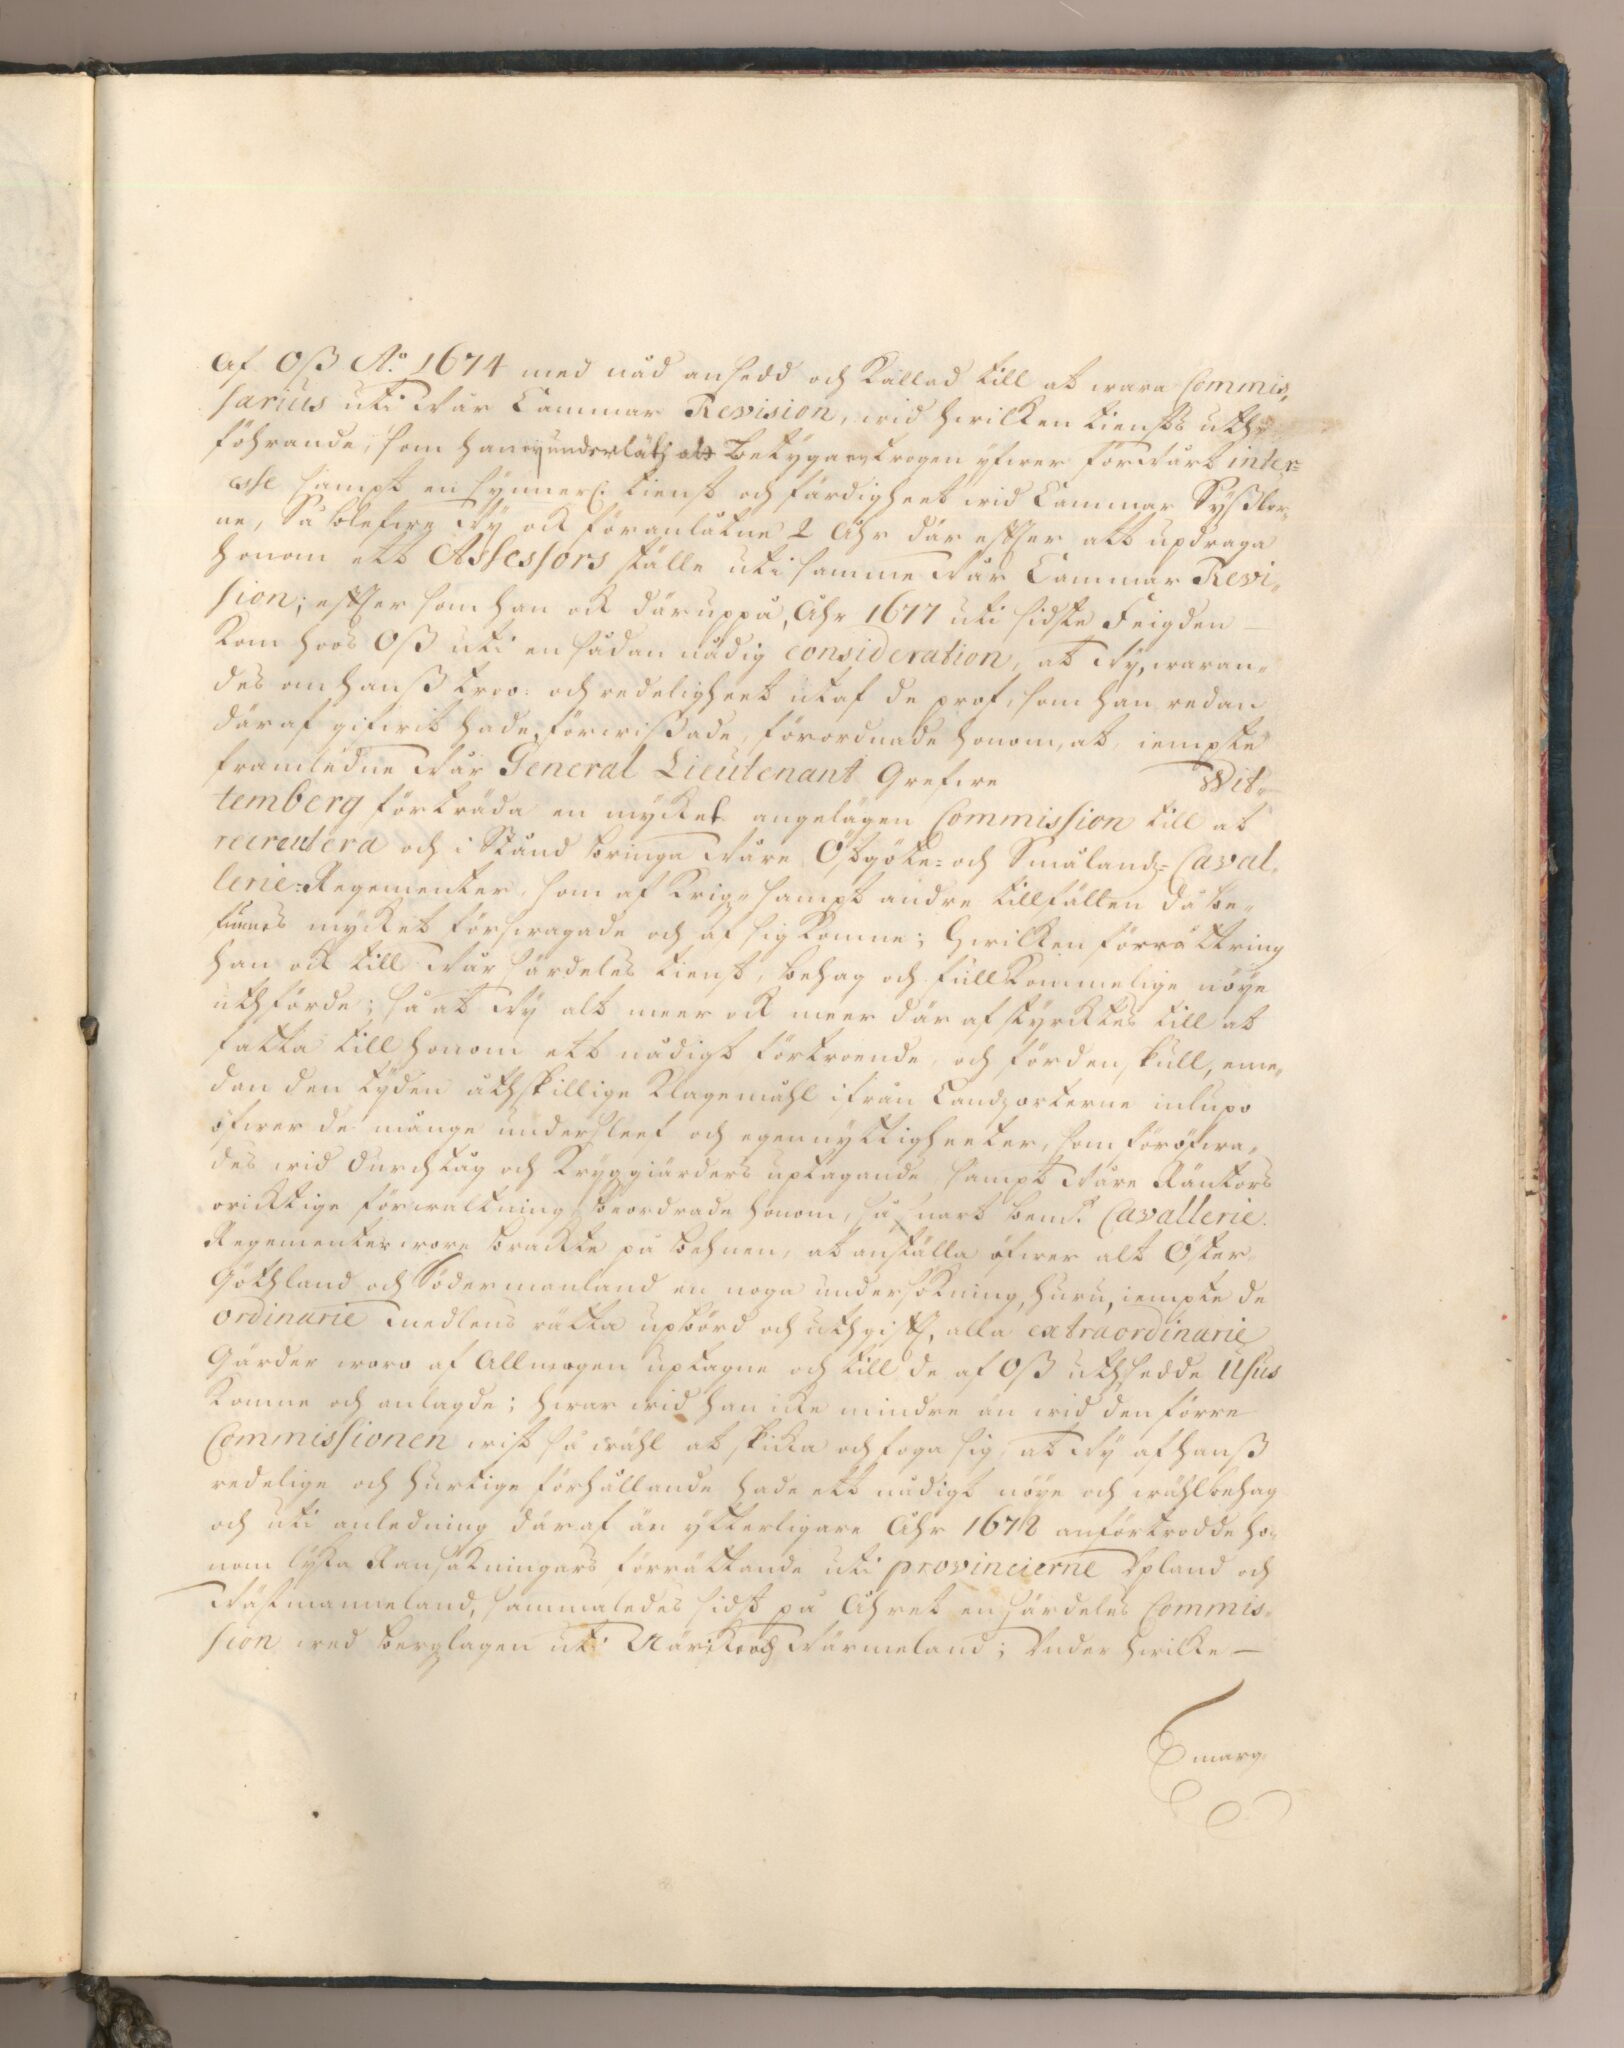 Af Oß A:o 1674 med nåd ansedd och kallad till at wara Commis,
sarius uti Wår Cammar Revision, wid hwilken tiensts uth,
föhrande, som han ey underlätj att betyga en trogen ifwer för Wårt inter=
esse sampt en synnerl: tienst och färdigheet wid Cammar Sysßlor,
ne, Så blefwe Wy ock föranlåtne 2 Åhr där effter att updraga
honom ett Assessors ställe uti samme Wår Cammar Revi,
sion; effter som han ock däruppå, Åhr 1677 uti sidste Feigden
kom hoos Oß uti en sådan nådig consideration, at Wy, waran,
des om hanß troo- och redeligheet utaf de prof, som han redan
däraf gifwit hade, förwissade, förordnade honom, at, iempte
framledne Wår General Lieutenant Grefwe Wit,
temberg förträda en mycket angelägen Commission till at
recreutera och i stånd bringa Wåre Östgöte- och Smålandz-Caval,
lerie-Regementer, som af krigz- sampt andre tillfällen då be,
funnes mycket förswagade och af sig komne; Hwilken förrättning
han ock till Wår särdeles tienst, behag och fullkommelige nöye
uthförde; så at Wy alt meer ock meer där af styrcktes till at
fatta till honom ett nådigt förtroende, och förden skull, eme,
dan den tyden åthskillige klagemåhl ifrån Landzorterne inlupo
öfwer de många underslef och egennyttigheeter, som föröfwa,
des wid durchtåg och krygzgiärders uptagande, sampt Wåre Räntors
oricktige förwaltning, beordrade honom, så snart bem:te Cavallerie
Regementer wore brackte på behnen, at anställa öfwer alt Öster,
Göthland och Södermanland en noga undersökning, huru, iempte de
ordinarie medlens rätta upbörd och uthgifft, alla extraordinarie
Gärder woro af Allmogen uptagne och till de af Oß uthsedde Usus
komne och anlagde; hwar wid han icke mindre än wid den förre
Commissionen wist så wähl at skicka och foga sig, at Wy af hanß
redelige och hurtige förhållande hade ett nådigt nöye och wählbehag
och uti anledning däraf än ytterligare Åhr 1678 anförtrodde ho,
nom lyka Ransakningars förrättande uti provincierne Upland och
Wästmanneland, sammaledes sidst på Åhret en särdeles Commis,
sion wed bergzlagen uti Närike och Wärmeland; Under hwilke
marg.